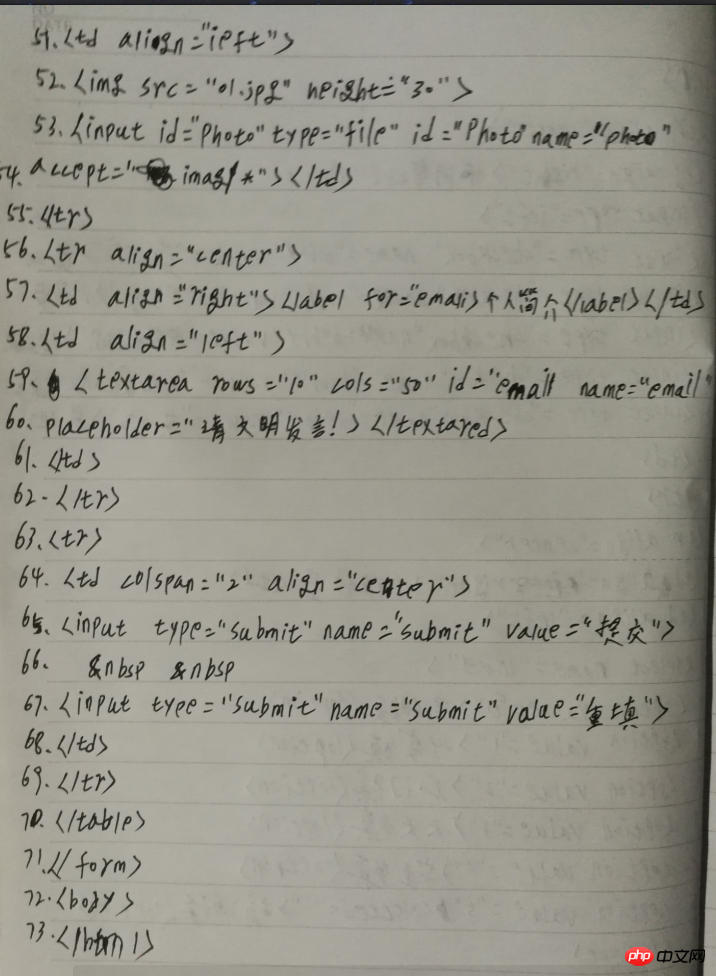 51.<td aliogn="left">
52.<img src="01.jpg" height="30">
53.<input id="Photo" type="file" id="Photo name="photo"
54. accept=" imag/*"></td>
55.</tr>
56.<tr align="center">
57.<td align="right"><label for="email>个人简介</label></td>
58.<td align="left">
59. <textarea rows="10" cols="50" id="email name="email"
60. placeholder="请文明发言!></textared>
61.</td>
62.</tr>
63.<tr>
64.<td colspan="2" align="center">
65.<input type="submit" name="submit" value="提交">
66. &nbsp &nbsp
67.<input tyee="submit" name="submit" value="重填">
68.</td>
69.</tr>
70.</table>
71.</form>
72.<body>
73.</html>
php 中文网